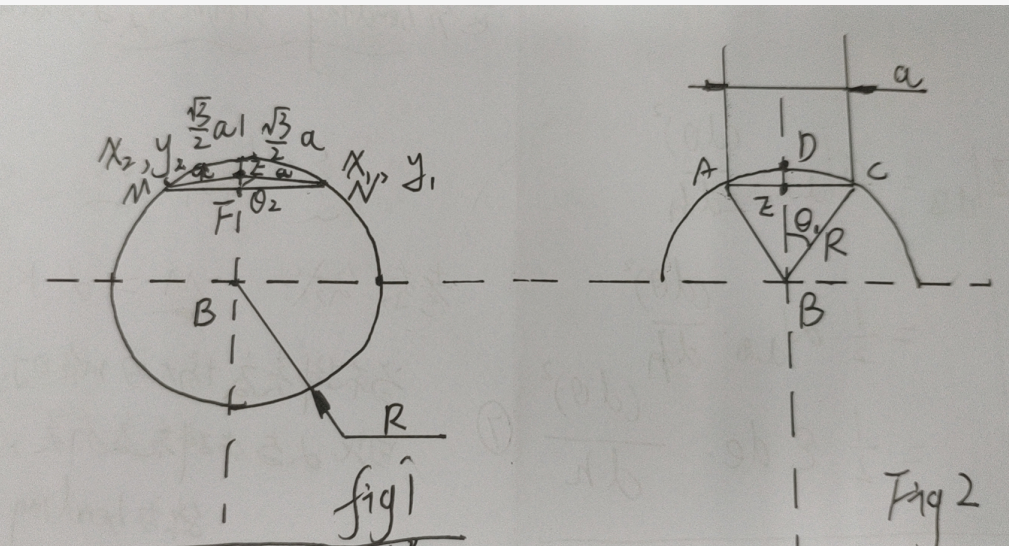 √3/2 a √3/2 a
X₂, y₂ a E a X₁, y₁
M N
F θ₂
B
R
fig1
a
D
A C
Z θ₁ R
B
Fig 2